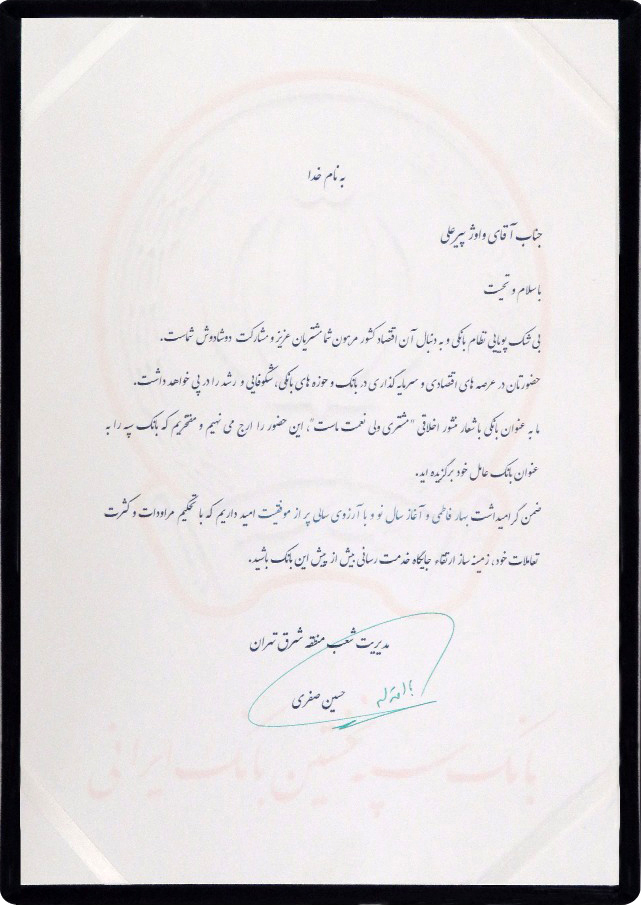 به نام خدا
جناب آقای واوژ پیرعلی
با سلام و تحیت
بی شک پویایی نظام بانکی و به دنبال آن اقتصاد کشور مرهون شما مشتریان عزیز و مشارکت دوشادوش شماست.
حضورتان در عرصه های اقتصادی و سرمایه گذاری در بانک و حوزه های بانکی، شکوفایی و رشد را در پی خواهد داشت.
ما به عنوان بانکی با شعار منشور اخلاقی "مشتری ولی نعمت ماست"، این حضور را ارج می نهیم و مفتخریم که بانک سپه را به
عنوان بانک عامل خود برگزیده اید.
ضمن گرامیداشت بهار فاطمی و آغاز سال نو و با آرزوی سالی پر از موفقیت امید داریم که با تحکیم مراودات و کثرت
تعاملات خود، زمینه ساز ارتقاء جایگاه خدمت رسانی بیش از پیش این بانک باشید.
مدیریت شعب منطقه شرق تهران
حسین صفری
بانک سپه نخستین بانک ایرانی